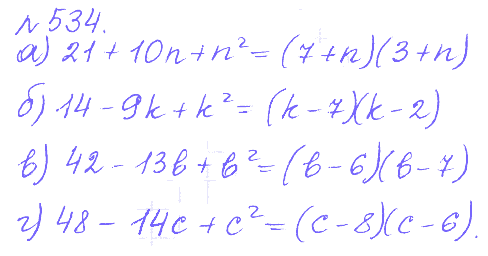 № 534.
а) 21 + 10n + n² = (7 + n)(3 + n)
б) 14 - 9k + k² = (k - 7)(k - 2)
в) 42 - 13в + в² = (в - 6)(в - 7)
г) 48 - 14с + с² = (с - 8)(с - 6).